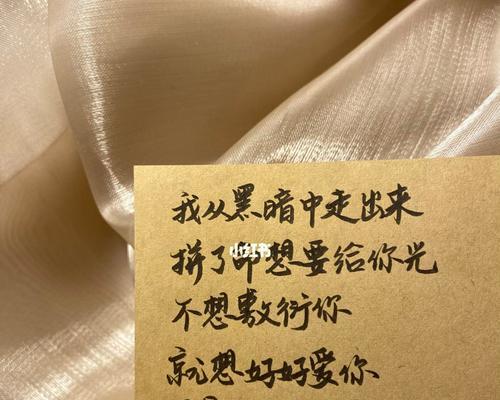 我从黑暗中走出来
拼了命想要给你光
小红书
不想敷衍你
就想好好爱你